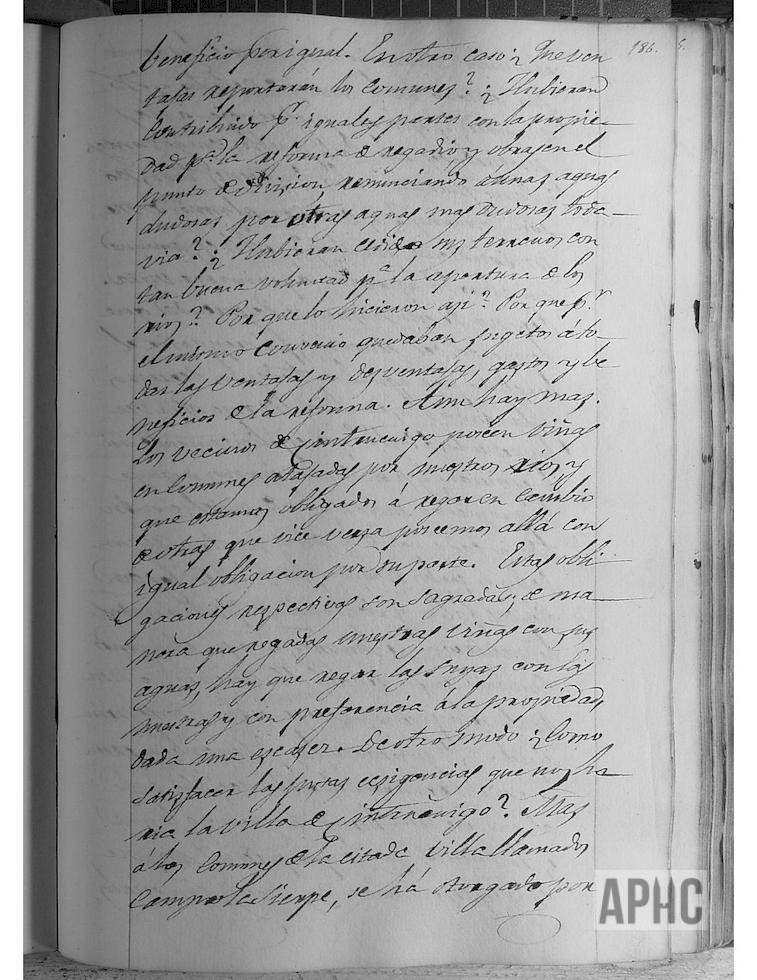 186.
beneficio por igual. En otro caso ¿Que ven
tajas reportarán los comunes? ¿Hubieran
contribuido pr. iguales partes con la propie-
dad pa. la reforma de regadio y obras en el
punto de division renunciando á unas aguas
dudosas por otras aguas mas dudosas toda-
via? ¿Hubieran cedido sus terrenos con
tan buena voluntad pa. la apertura de los
rios? Por que lo hicieron asi? Por que pr.
el mismo convenio quedaban sugetos á to-
das las ventajas y desventajas, gastos y be
neficios de la reforma. Aun hay mas.
Los vecinos de Cintruenigo poseen viñas
en Comunes atajadas por nuestros rios y
que estamos obligados á regar en cambio
de otras que vice versa poseemos allá con
igual obligacion por su parte. Estas obli-
gaciones respectivas son sagradas; de ma-
nera que regadas nuestras viñas con sus
aguas, hay que regar las suyas con las
nuestras y con preferencia á la propiedad,
dada una escasez. De otro modo ¿Como
satisfacer las justas ecsigencias que nos ha-
ria la villa de Cintruenigo? Mas
á los Comunes de la citada Villa llamados
Campo la Sierpe, se há otorgado por
APHC